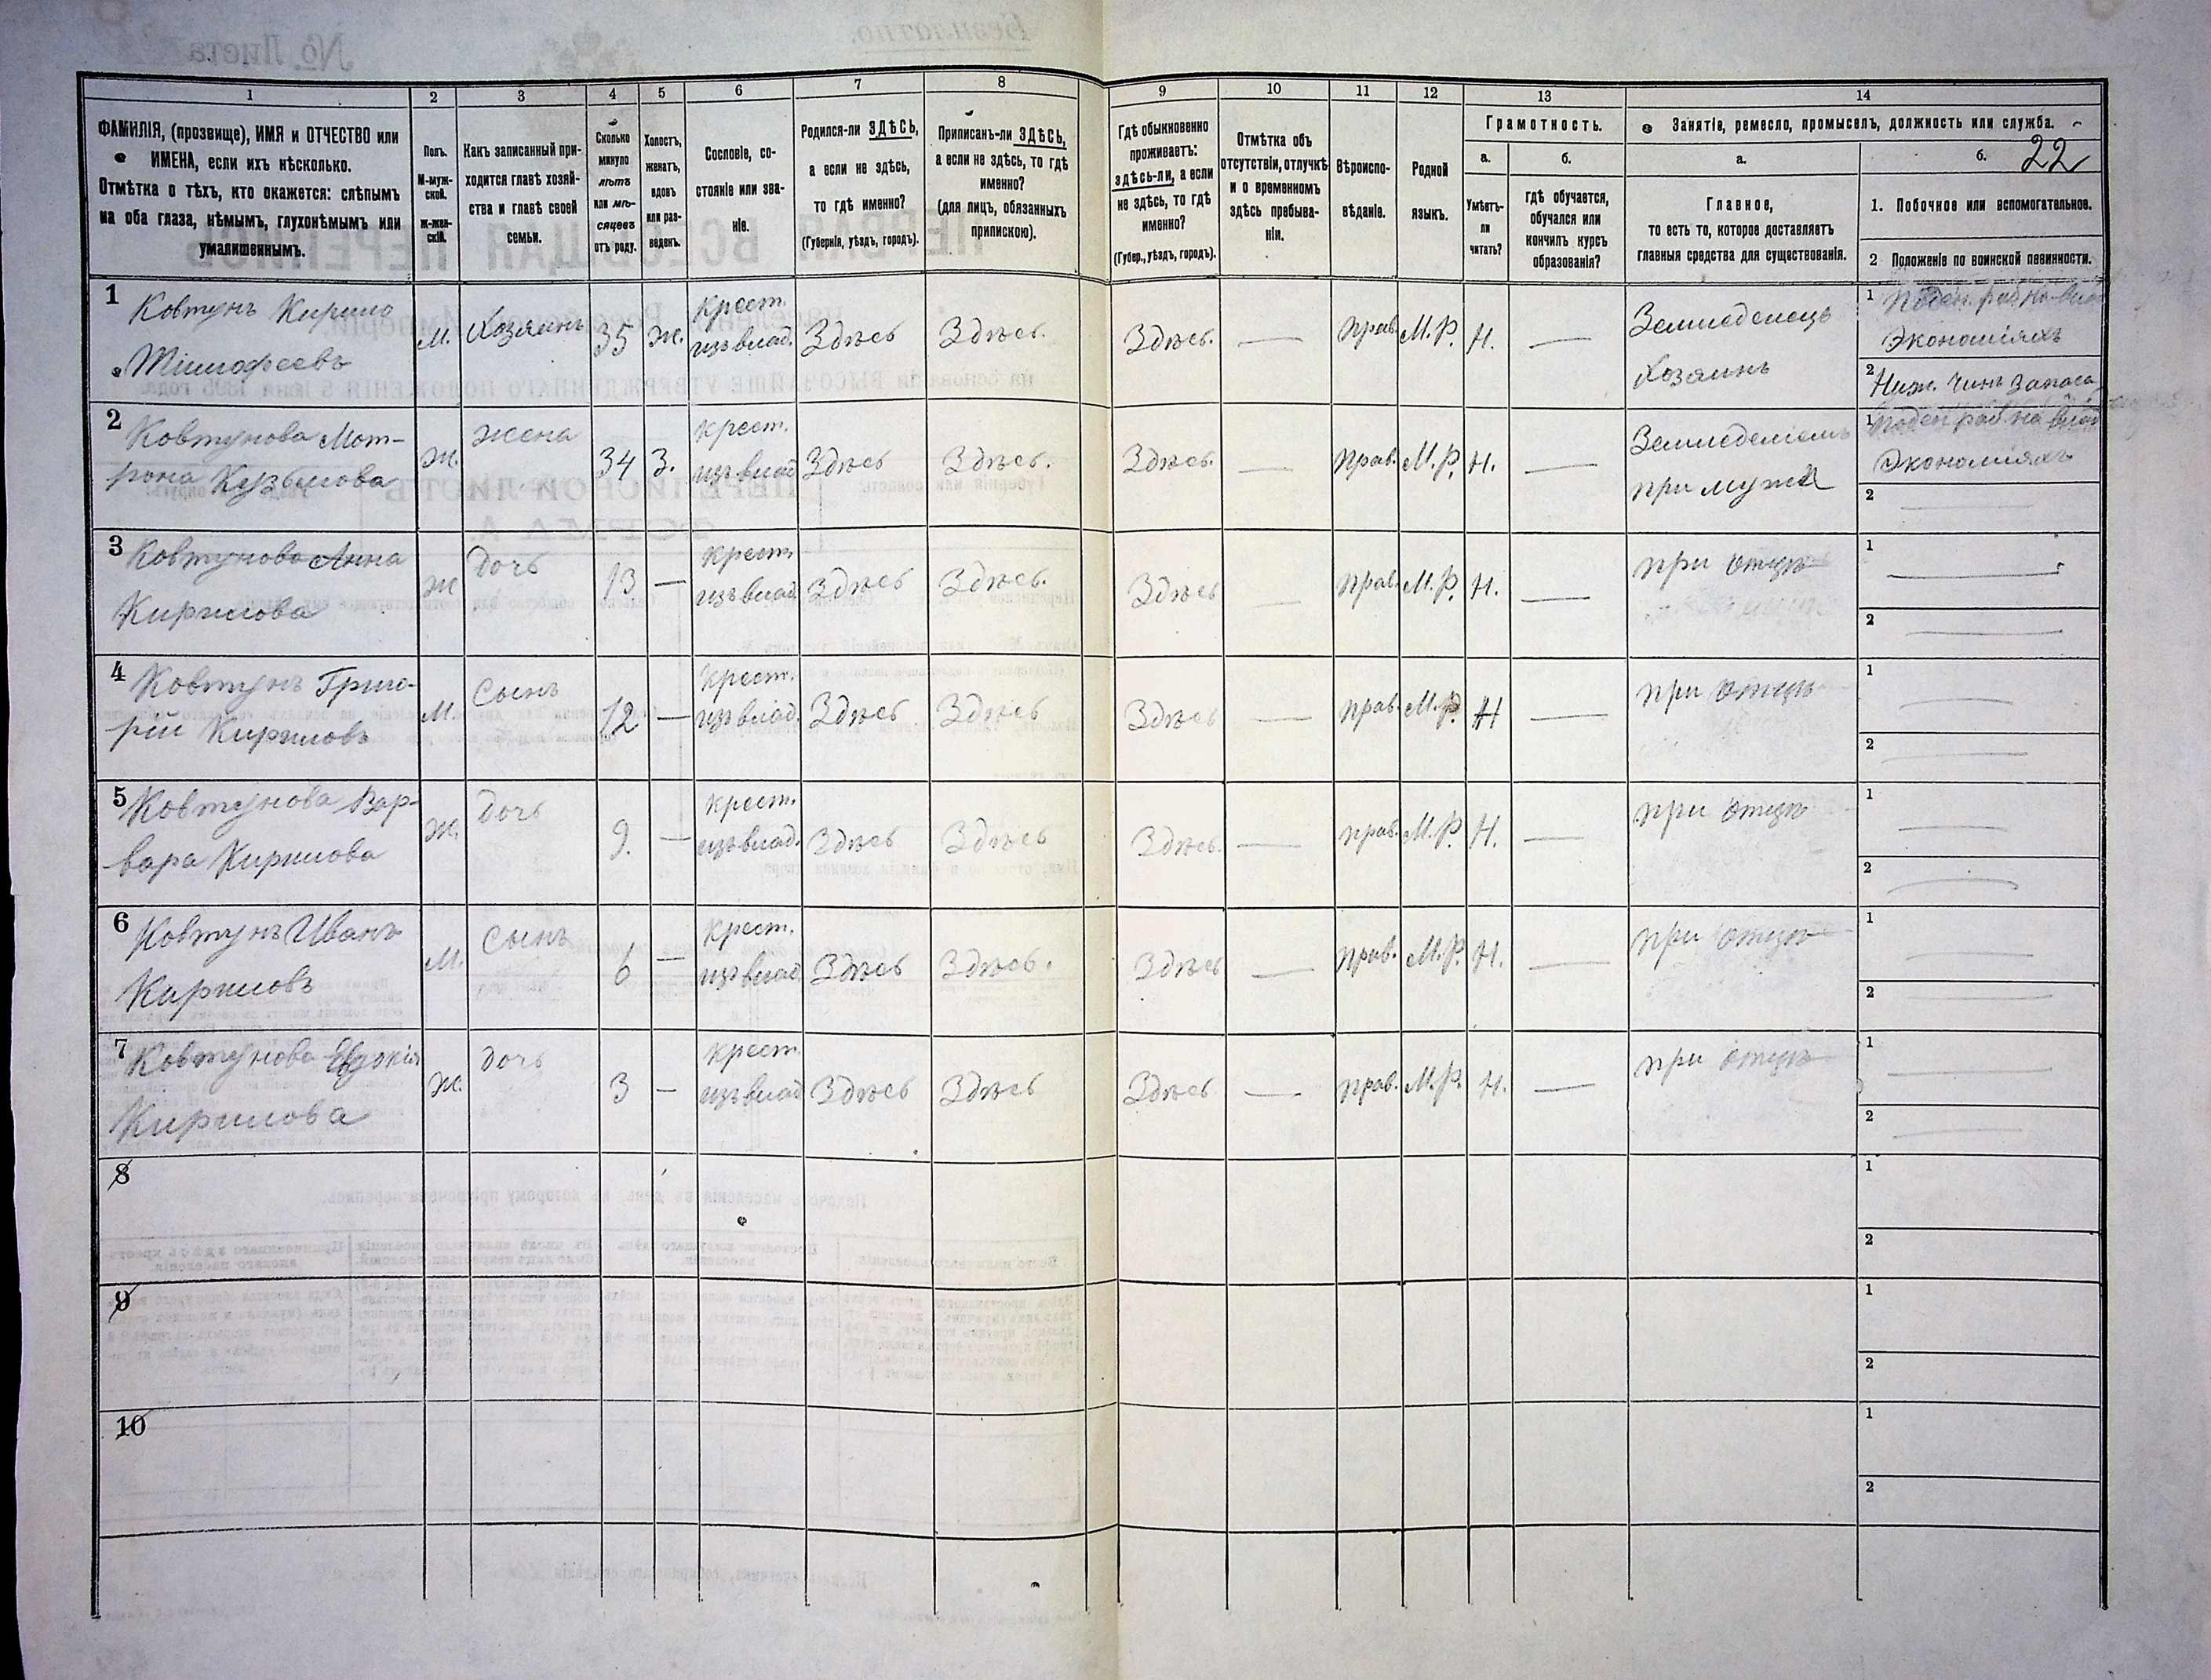 22
1
2
3
4
5
6
7
8
9
10
11
12
13
14
ФАМИЛІЯ, (прозвище), ИМЯ и ОТЧЕСТВО или
ИМЕНА, если ихъ нѣсколько.
Отмѣтка о тѣхъ, кто окажется: слѣпымъ
на оба глаза, нѣмымъ, глухонѣмымъ или
умалишеннымъ.
Полъ.
М-муж-
ской.
Ж-жен-
скій.
Какъ записанный при-
ходится главѣ хозяй-
ства и главѣ своей
семьи.
Сколько
минуло
лѣтъ
или мѣ-
сяцевъ
отъ роду.
Холостъ,
женатъ,
вдовъ
или раз-
веденъ.
Сословіе, со-
стояніе или зва-
ніе.
Родился-ли ЗДѢСЬ,
а если не здѣсь,
то гдѣ именно?
(Губернія, уѣздъ, городъ).
Приписанъ-ли ЗДѢСЬ,
а если не здѣсь, то гдѣ
именно?
(для лицъ, обязанныхъ
припискою).
Гдѣ обыкновенно
проживаетъ:
здѣсь-ли, а если
не здѣсь, то гдѣ
именно?
(Губер., уѣздъ, городъ).
Отмѣтка объ
отсутствіи, отлучкѣ
и о временномъ
здѣсь пребыва-
ніи.
Вѣроиспо-
вѣданіе.
Родной
языкъ.
Грамотность.
а.
б.
Умѣетъ-
ли
читать?
гдѣ обучается,
обучался или
кончилъ курсъ
образованія?
Занятіе, ремесло, промыселъ, должность или служба.
а.
б.
Главное,
то есть то, которое доставляетъ
главныя средства для существованія.
1. Побочное или вспомогательное.
2 Положеніе по воинской повинности.
1 Ковтунъ Кирило Тимофеевъ М. Хозяинъ 35 Ж. Крест. изъ влад. Здѣсь Здѣсь. Здѣсь. — прав. М.Р. Н. — Земледелецъ Хозяинъ
1 Поден. раб. на влад. Экономіяхъ
2 Ниж. Чинъ Запаса
2 Ковтунова Мот-
рона Кузьмова Ж. жена 34 З. крест. изъ влад. Здѣсь Здѣсь. Здѣсь. — прав. М.Р. Н. — Земледеліемъ при мужѣ
1 Поден раб на влад Экономіяхъ
2 —
3 Ковтунова Анна Кирилова Ж Дочь 13 — крест. изъ влад. Здѣсь Здѣсь. Здѣсь — прав. М.Р. Н. — при отцѣ
1 —
2 —
4 Ковтунъ Григо-
рій Кириловъ М. Сынъ 12 — крест. изъ влад. Здѣсь Здѣсь Здѣсь — прав. М.Р. Н — при отцѣ
1 —
2 —
5 Ковтунова Вар-
вара Кирилова Ж. Дочь 9. — крест. изъ влад. Здѣсь Здѣсь Здѣсь. — прав. М.Р. Н. — при отцѣ
1 —
2 —
6 Ковтунъ Иванъ Кириловъ М. Сынъ 6 — крест. изъ влад. Здѣсь Здѣсь. Здѣсь — прав. М.Р. Н. — при отцѣ
1 —
2 —
7 Ковтунова Евдокія Кирилова Ж. дочь 3 — крест. изъ влад Здѣсь Здѣсь Здѣсь — прав. М.Р. Н. — при отцѣ
1 —
2 —
8
1
2
9
1
2
10
1
2